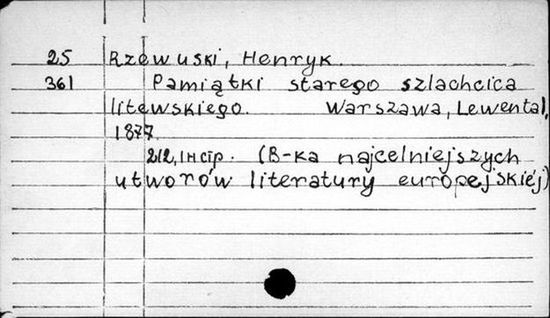 25 Rzewuski, Henryk.
361 Pamiątki starego szlachcica
litewskiego. Warszawa, Lewental,
1877.
212, IHcip. (B-ka najcelniejszych
utworów literatury europejskiej)